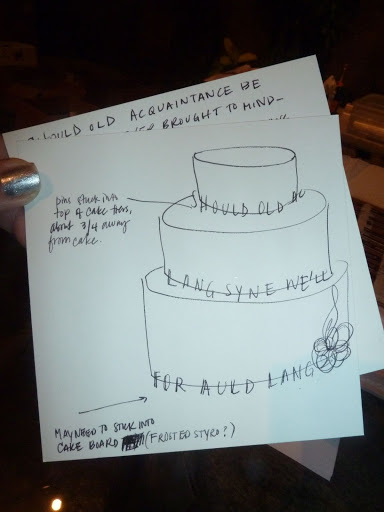 SHOULD OLD ACQUAINTANCE BE
BROUGHT TO MIND-
pins stuck into
top of cake tiers,
about 3/4 away
from cake.
HOULD OLD AC
LANG SYNE WE'LL
FOR AULD LANG
MAY NEED TO STICK INTO
CAKE BOARD (FROSTED STYRO?)